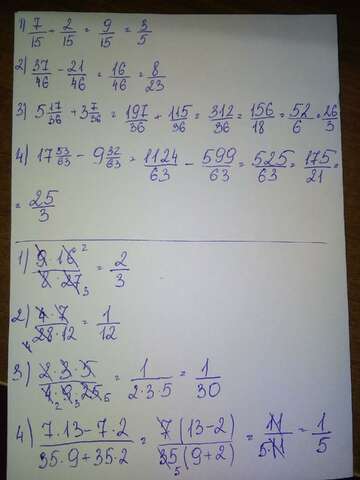 1) 7/15 + 2/15 = 9/15 = 3/5
2) 37/46 - 21/46 = 16/46 = 8/23
3) 5 17/36 + 3 7/36 = 197/36 + 115/36 = 312/36 = 156/18 = 52/6 = 26/3
4) 17 53/63 - 9 32/63 = 1124/63 - 599/63 = 525/63 = 175/21 =
= 25/3
1) 9·16 2/8·27 3 = 2/3
2) 4·7/4 28·12 = 1/12
3) 2·3·5/4 2·9 3·25 5 = 1/2·3·5 = 1/30
4) 7·13-7·2/35·9+35·2 = 7(13-2)/35 5(9+2) = 11/5·11 = 1/5